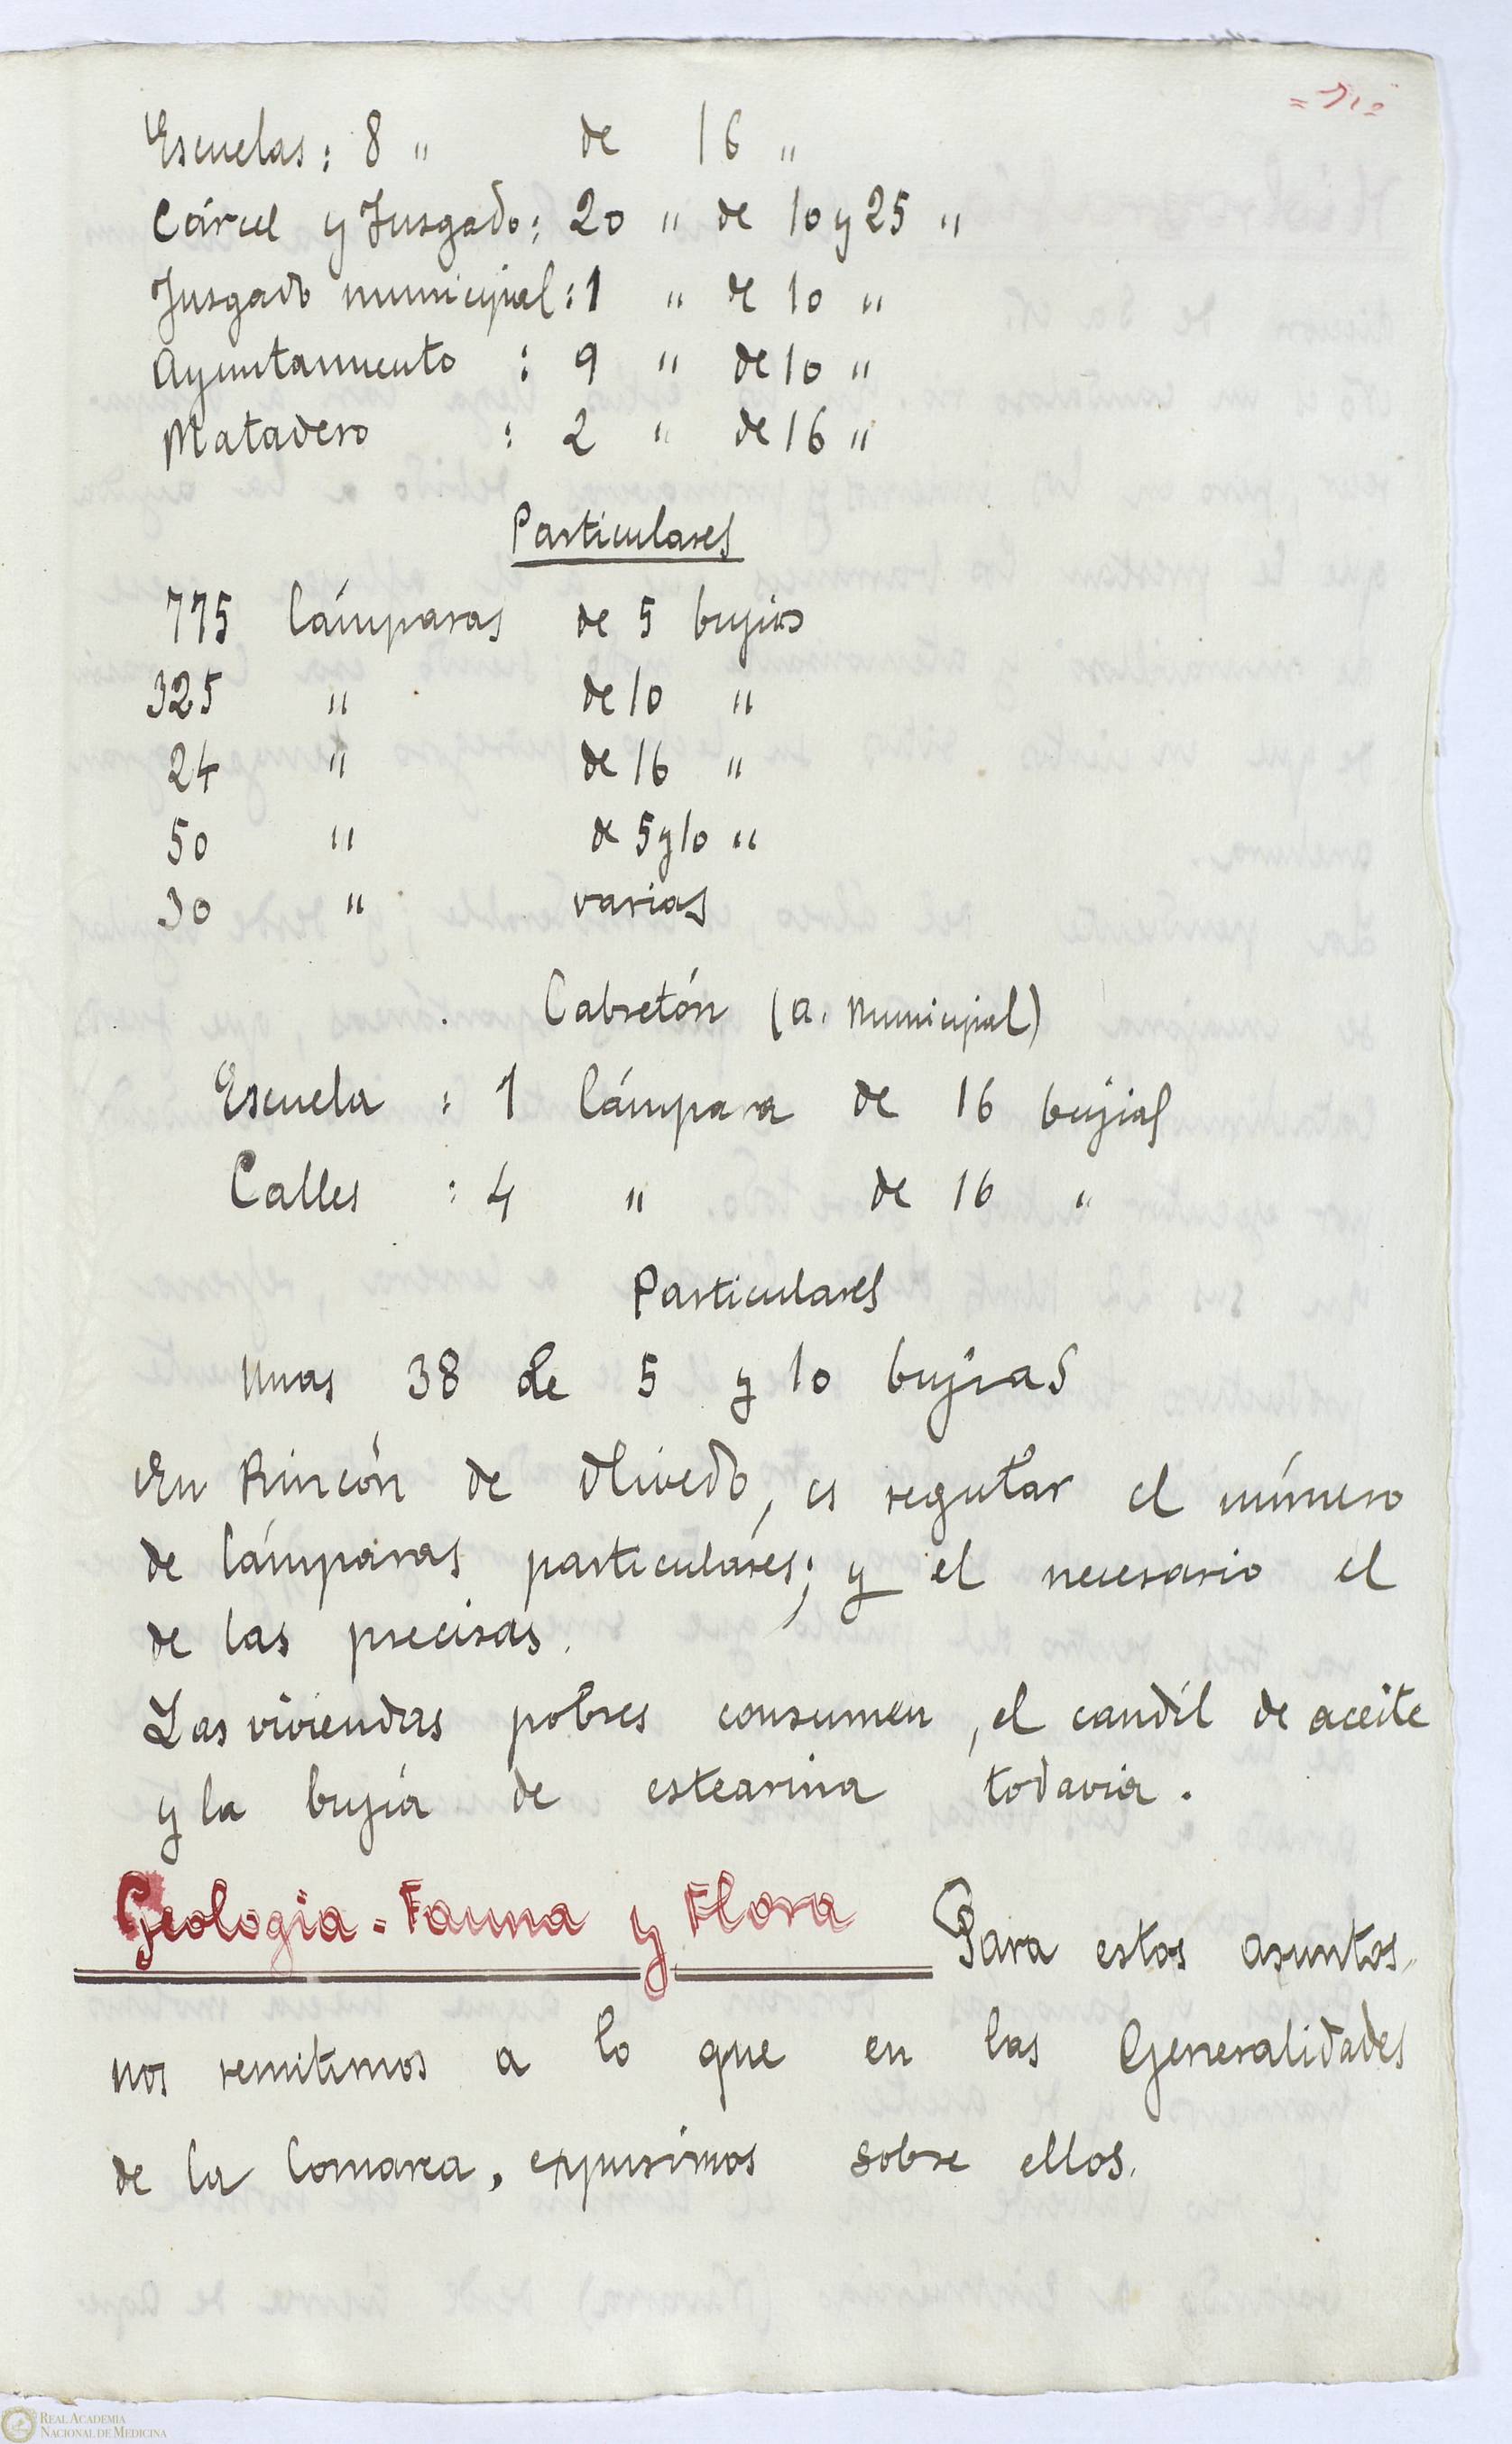 Escuelas: 8 " de 16 "
Cárcel y Jusgado: 20 " de 10 y 25 "
Jusgado municipal: 1 " de 10 "
Ayuntamiento : 9 " de 10 "
Matadero : 2 " de 16 "
Particulares
775 lámparas de 5 bujias
325 " de 10 "
24 " de 16 "
50 " de 5 y 10 "
30 " varias
Cabretón (a. Municipal)
Escuela : 1 lámpara de 16 bujias
Calles : 4 " de 16 "
Particulares
Unas 38 de 5 y 10 bujias
En Rincón de Olivedo, es regular el número
de lámparas particulares; y el necesario el
de las precisas.
Las viviendas pobres consumen, el candil de aceite
y la bujía de estearina todavia.
Geologia = Fauna y Flora Para estos asuntos,
nos remitimos a lo que en las Generalidades
de la Comarca, expusimos sobre ellos.
REAL ACADEMIA
NACIONAL DE MEDICINA